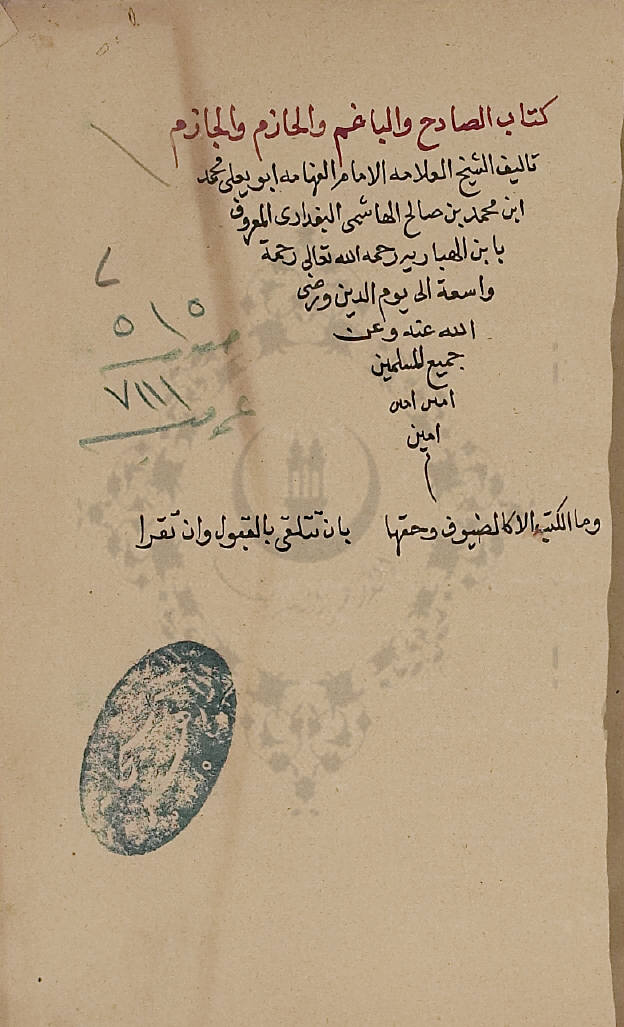 كتاب الصادح والباغم والحازم والجازم
تاليف الشيخ العلامه الامام الفهامه ابو يعلى محمد
ابن محمد بن صالح الهاشمى البغدادى المعروف
بابن الهباريه رحمه الله تعالى رحمة
واسعة الى يوم الدين ورضى
الله عنه وعن
جميع المسلمين
امين امين
امين
وما الكتب الا كالضيوف وحقها بان تتلقى بالقبول وان تقرا
٥١٥
٧١١١